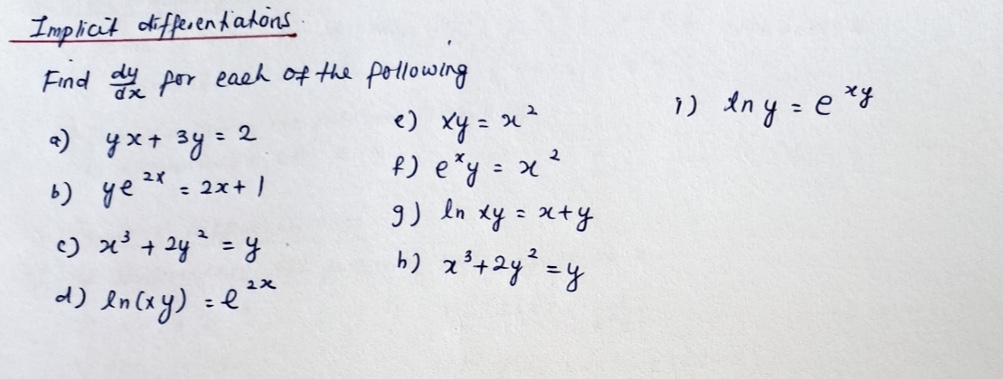 Implicit differentiations.
Find dy/dx for each of the following
a) yx + 3y = 2
b) ye^2x = 2x + 1
c) x³ + 2y² = y
d) ln(xy) = e^2x
e) xy = x²
f) e^x y = x²
g) ln xy = x+y
h) x³+2y² = y
i) ln y = e^xy